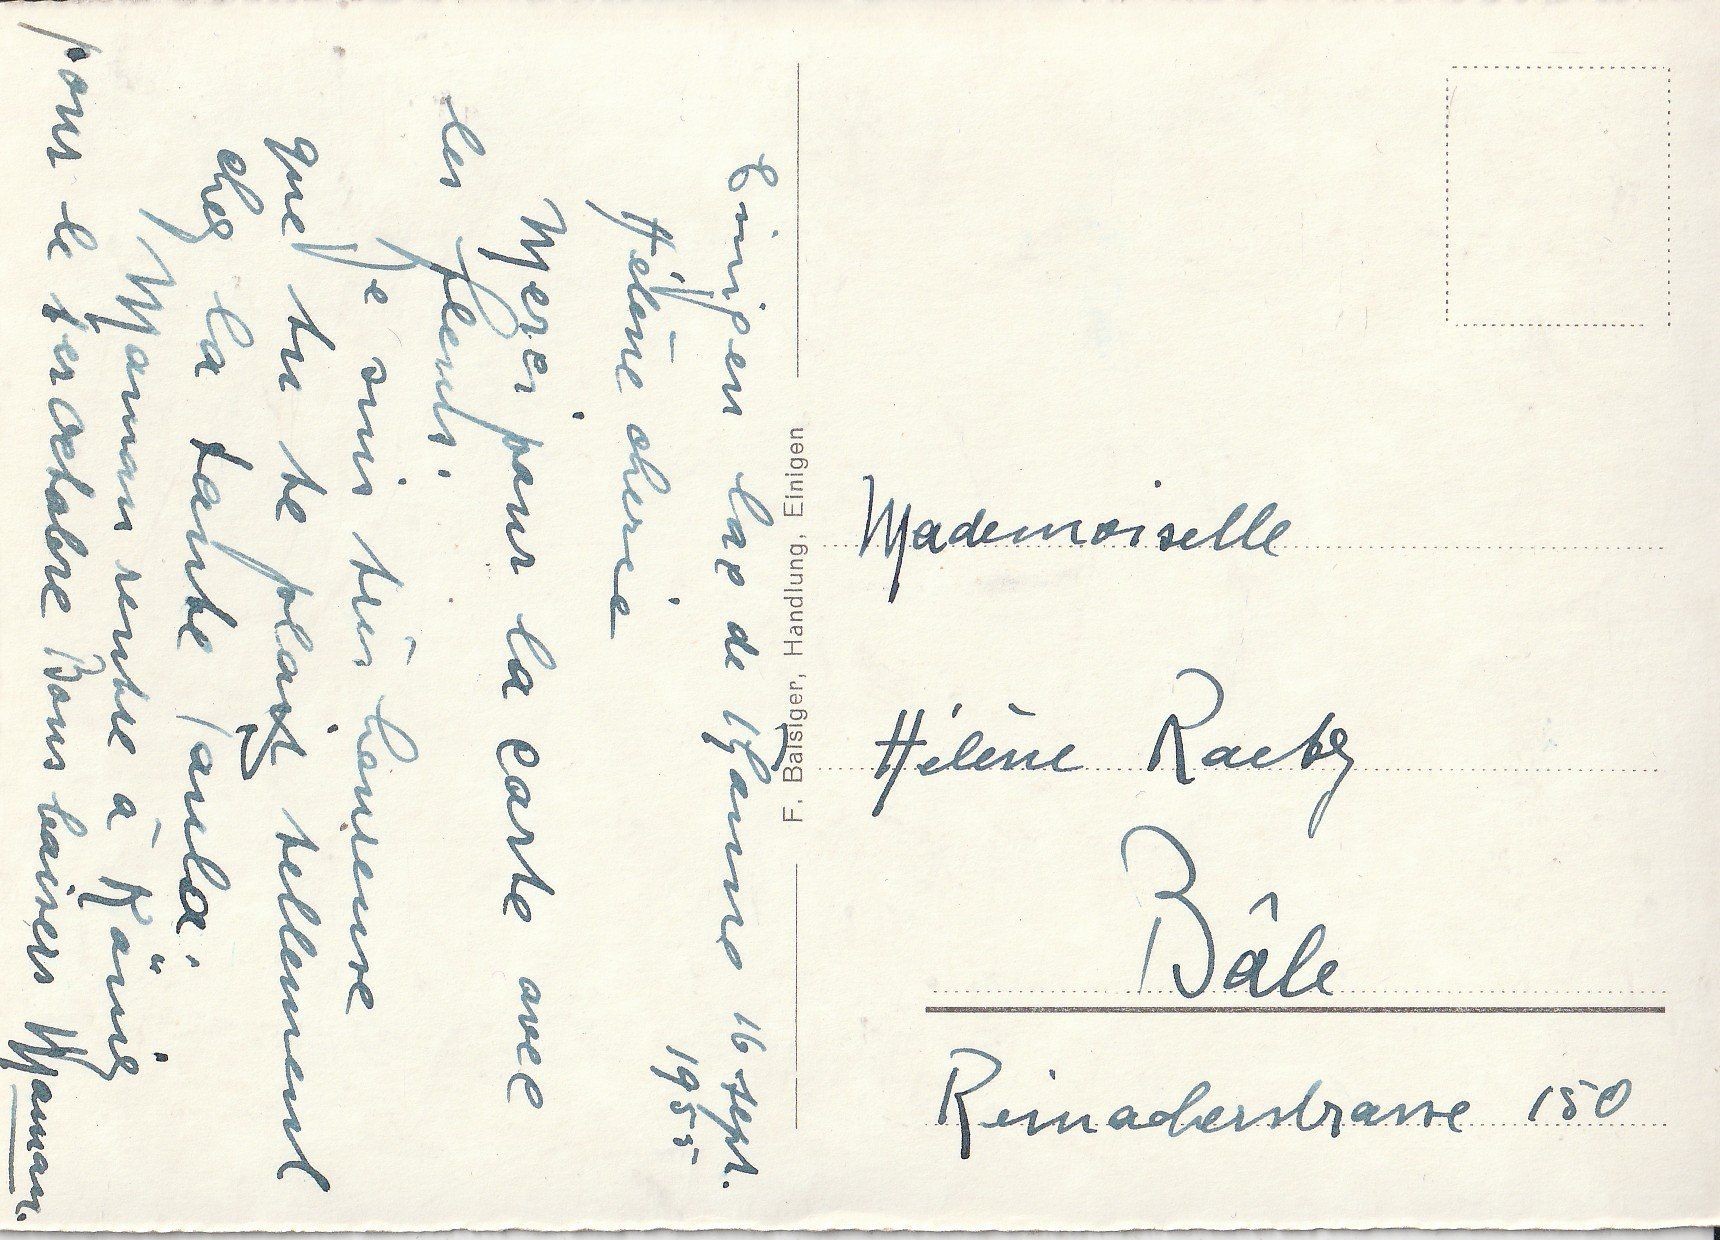 Einigen lac de Thanne 16 sept.
1955
Hélène cherie
Merci pour la carte avec
les fleurs.
Je suis très heureuse
que tu te plaist tellement
chez la tante Paula.
Maman rentre à Köniz
pour le 1er Octobre Bons baisers Maman.
F. Balsiger, Handlung, Einigen
Mademoiselle
Hélène Raetz
Bâle
Reinacherstrasse 150